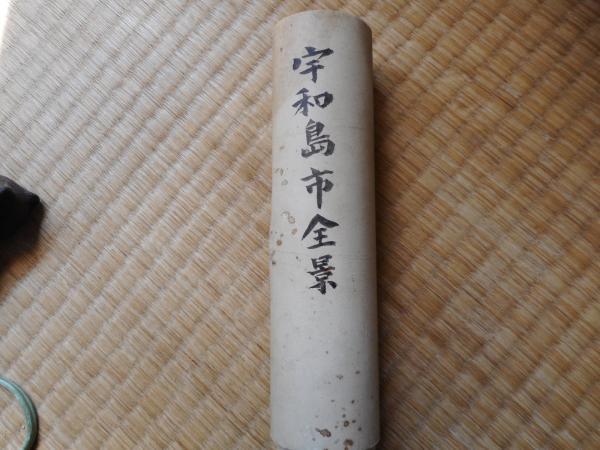 宇和島市全景